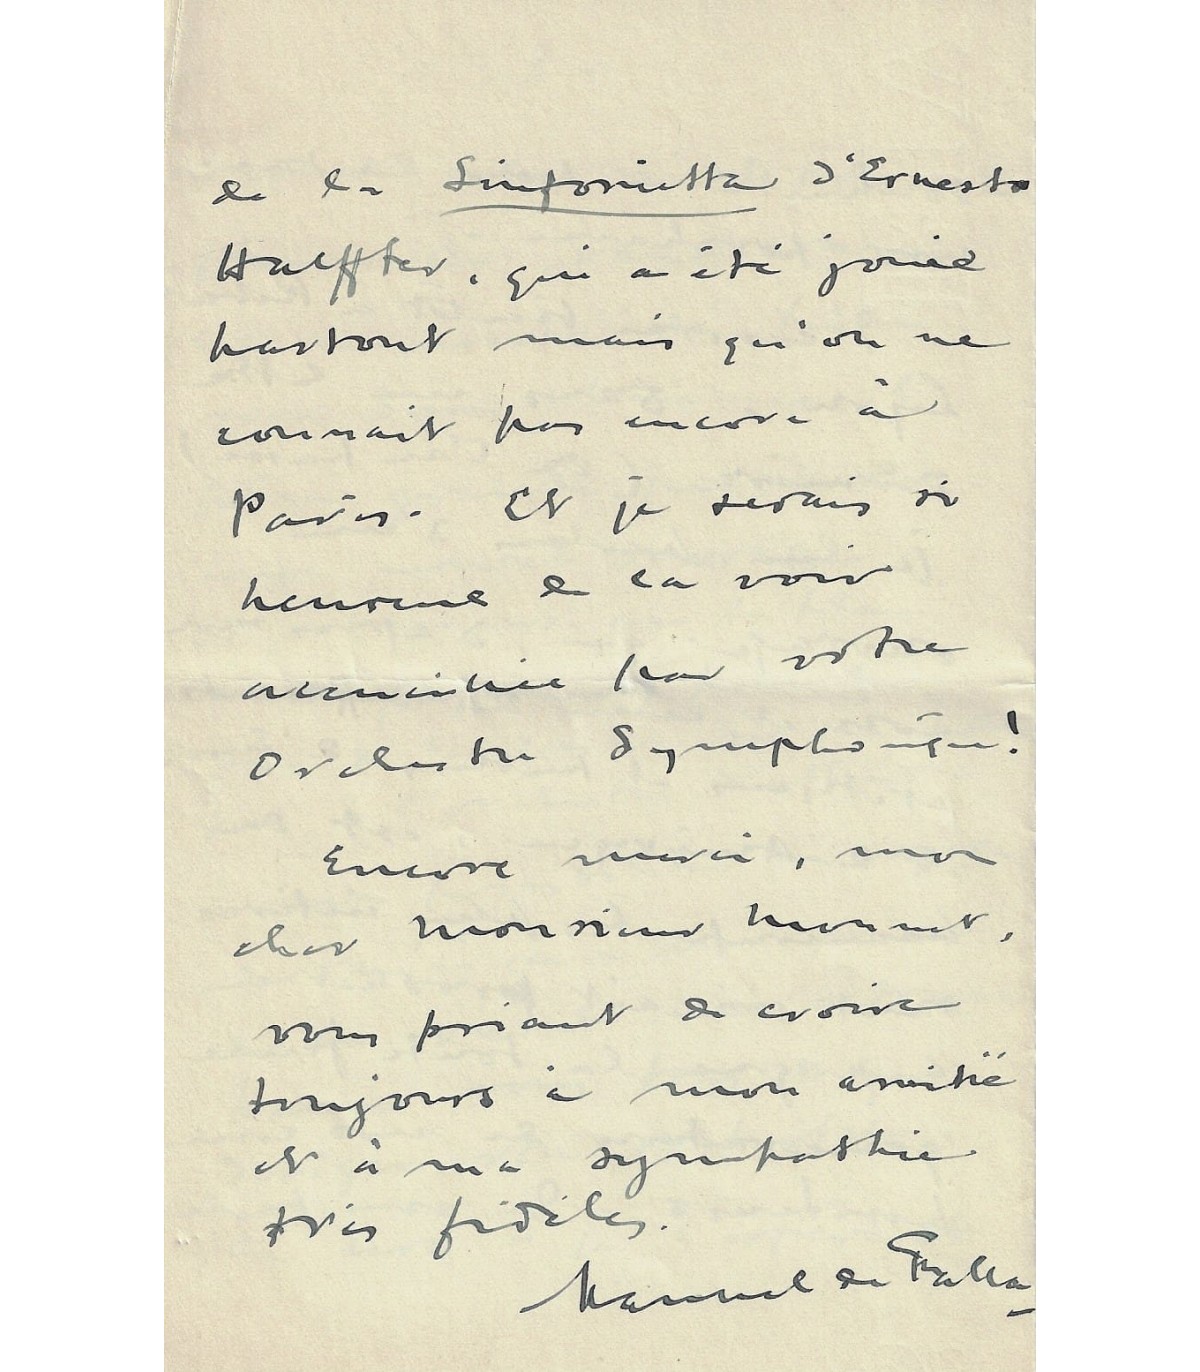 de la Sinfonietta d'Ernesto
Halffter, qui a été jouée
partout mais qu'on ne
connait pas encore à
Paris. Et je serais si
heureux de la voir
accueillie par votre
Orchestre Symphonique!
Encore merci, mon
cher Monsieur Monnet,
vous priant de croire
toujours à mon amitié
et à ma sympathie
très fidèles.
Manuel de Falla